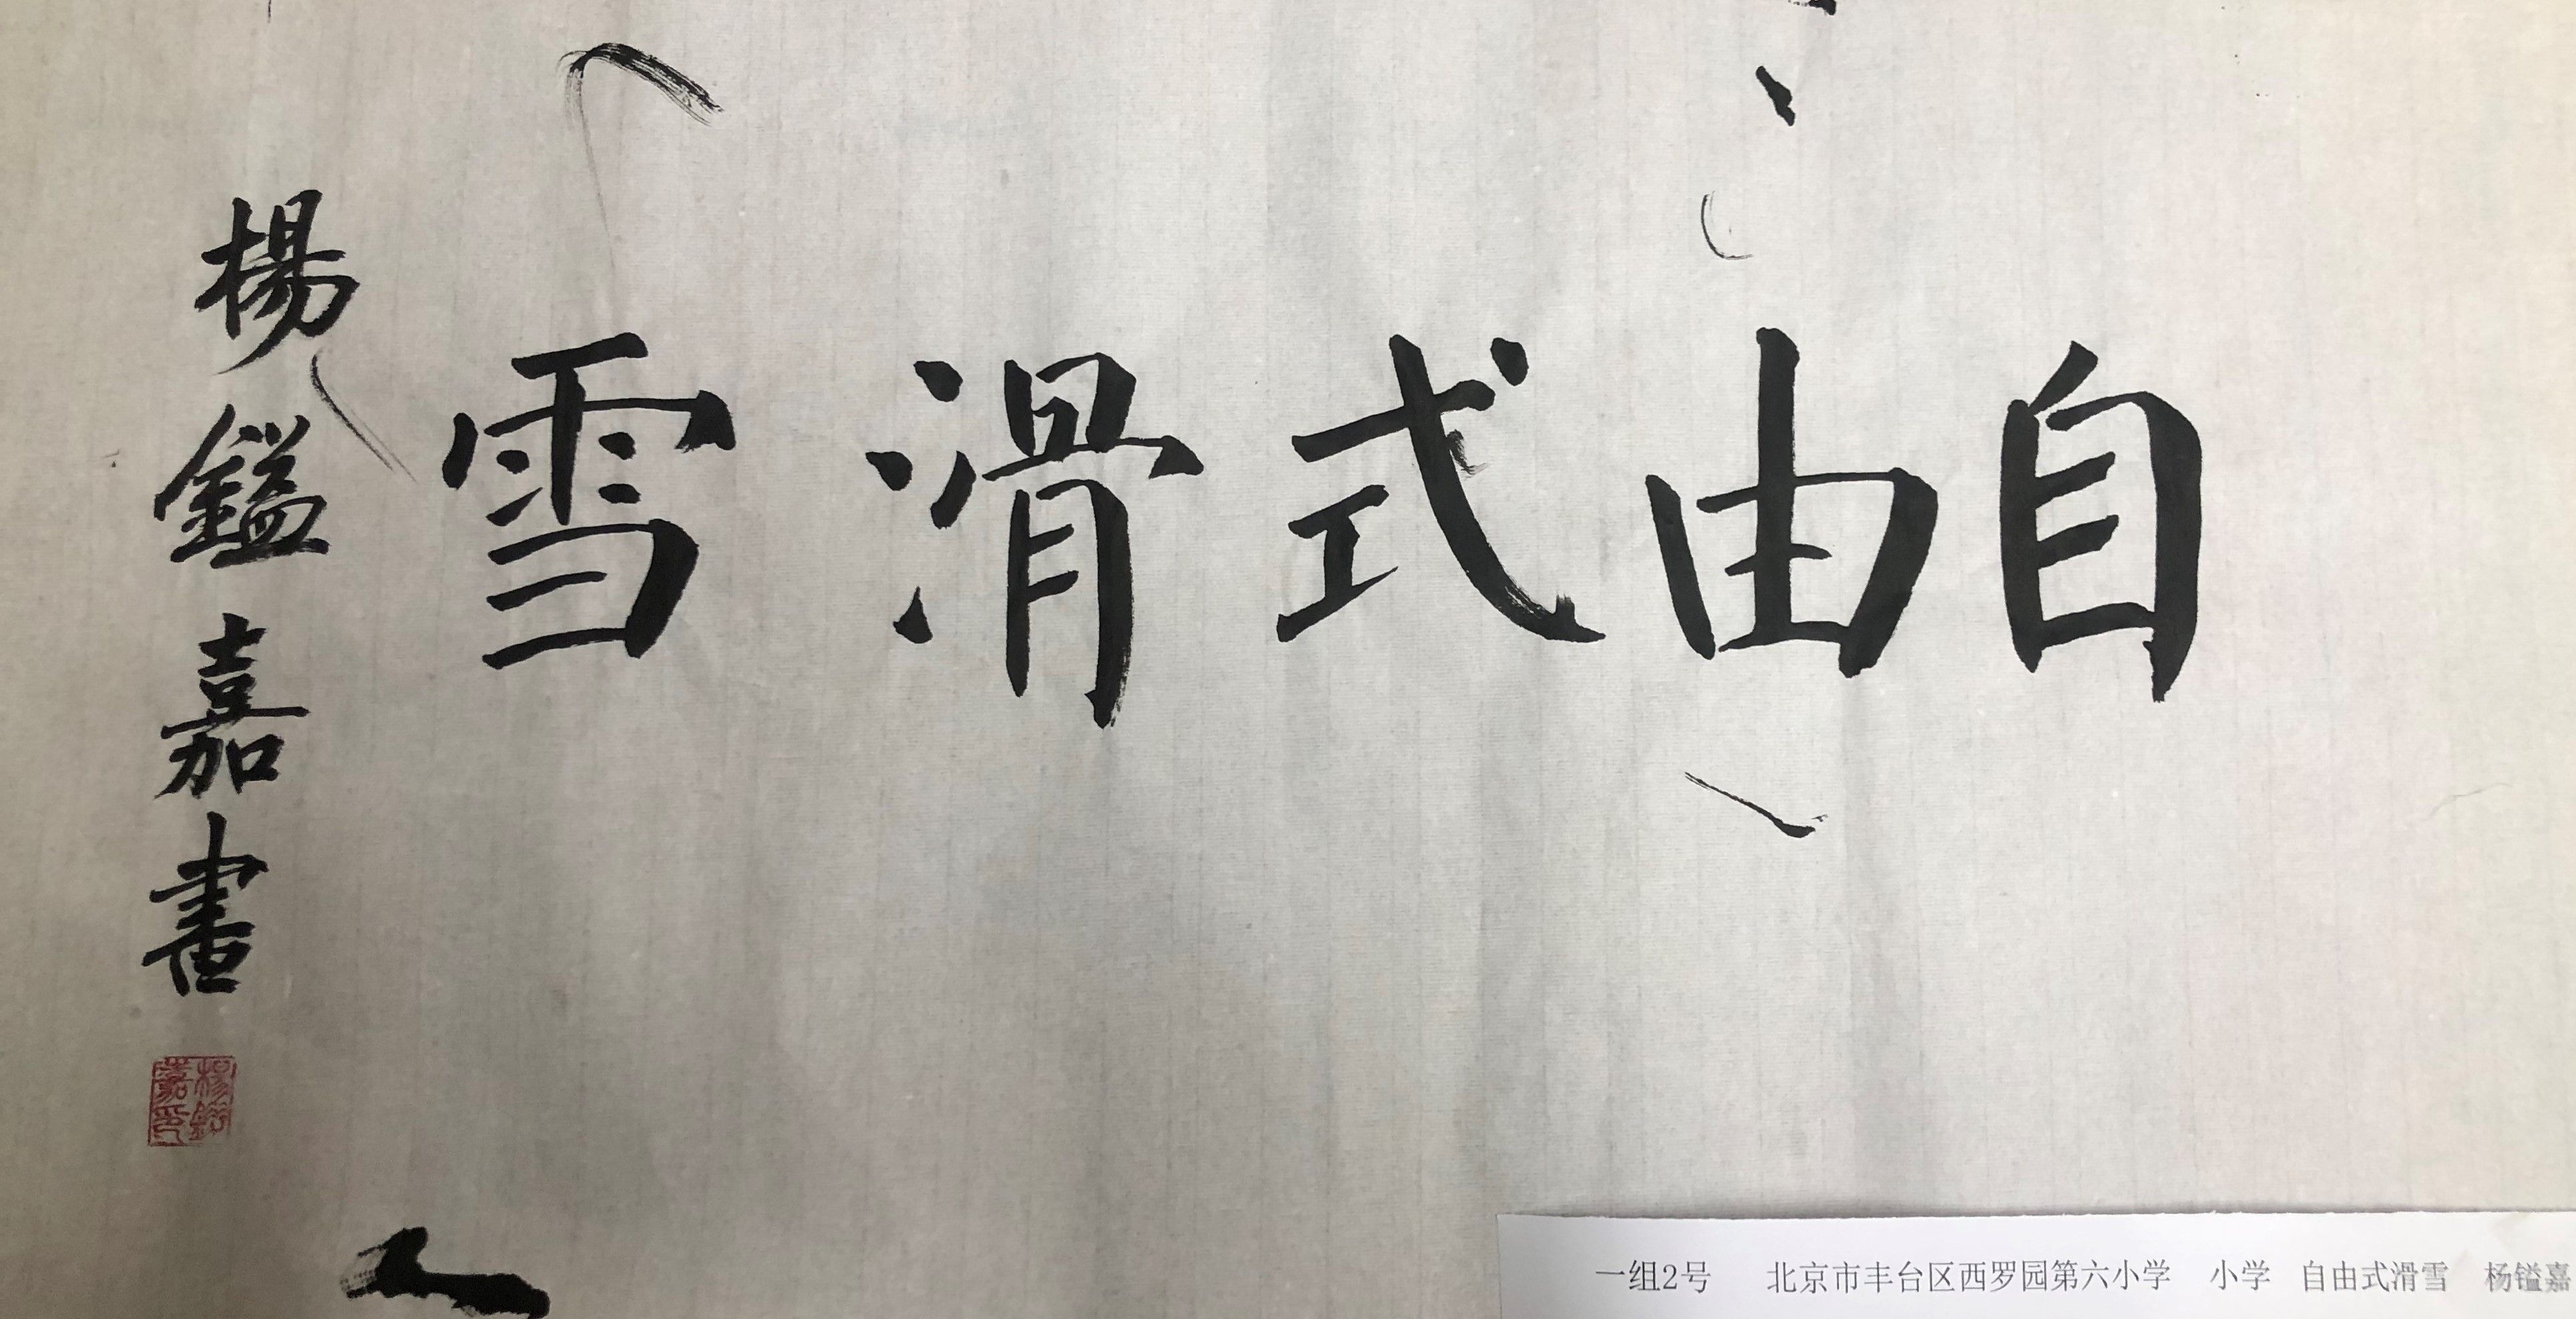 自由式滑雪
楊鎰嘉書
楊鎰嘉印
一组2号 北京市丰台区西罗园第六小学 小学 自由式滑雪 杨镒嘉